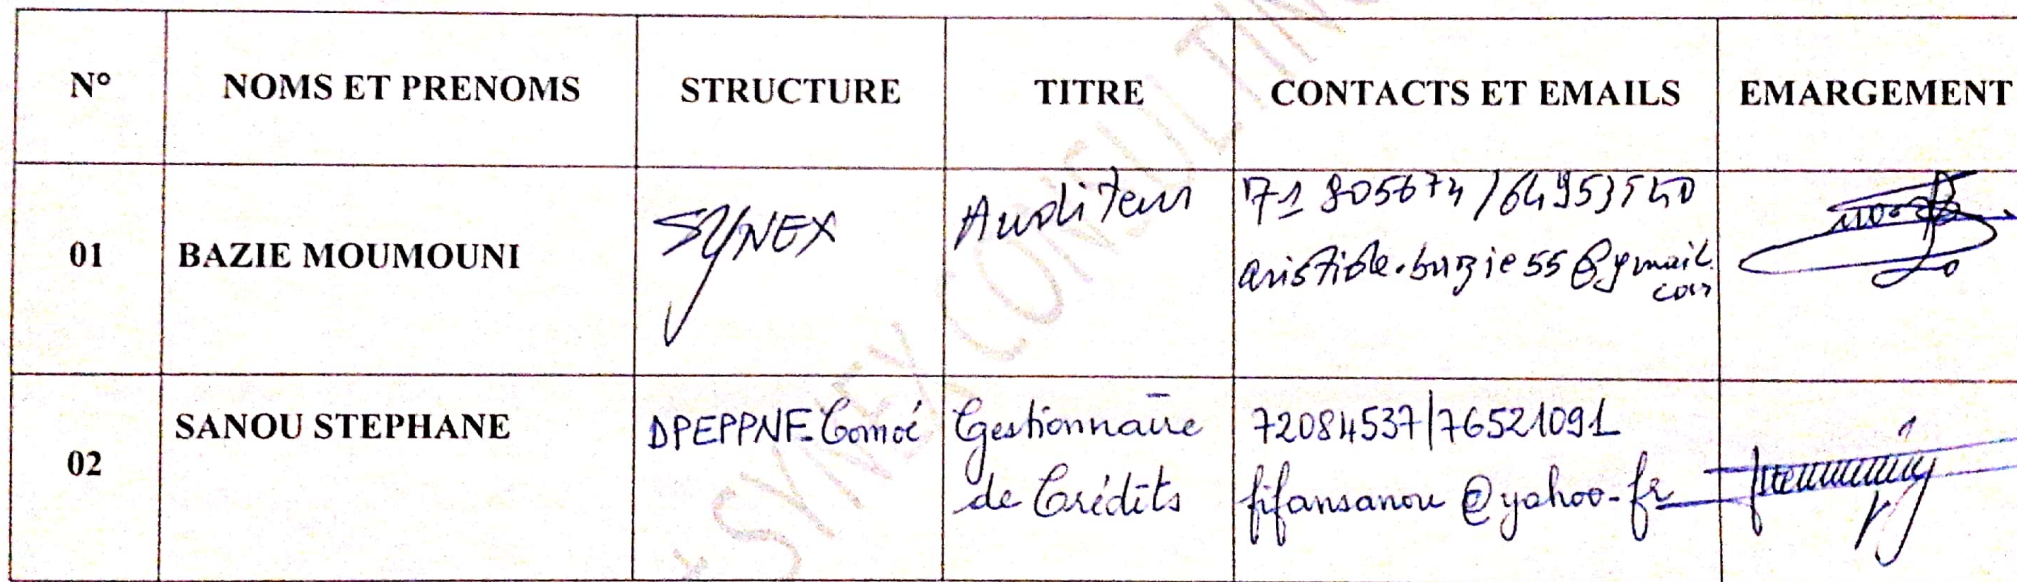 N° NOMS ET PRENOMS STRUCTURE TITRE CONTACTS ET EMAILS EMARGEMENT
01 BAZIE MOUMOUNI SYNEX Auditeur 71805674/64953540
aristide.bazie55@gmail.
com
02 SANOU STEPHANE DPEPPNF-Comoé Gestionnaire 72084537/76521091
de Crédits fifansanou@yahoo-fr
SYNEX CONSULTING